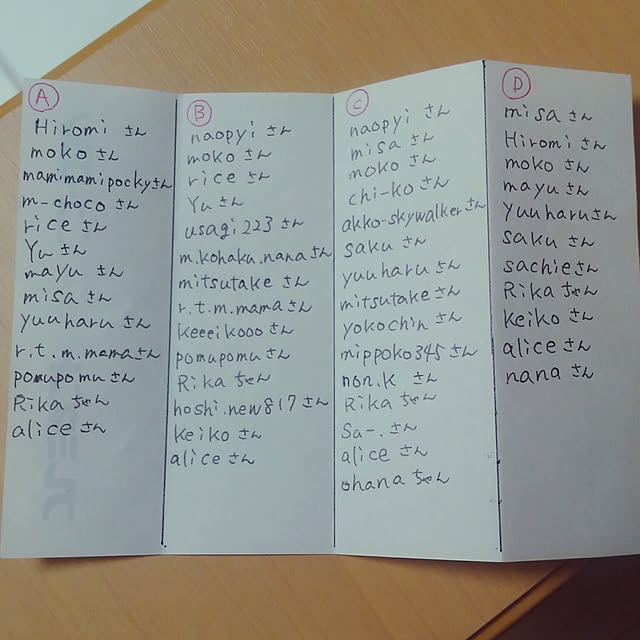 A
Hiromi さん
moko さん
mamimamipockyさん
m-choco さん
rice さん
Yu さん
mayu さん
misa さん
yuuharu さん
r.t.m.mamaさん
pomupomu さん
Rika ちゃん
alice さん
B
naopyi さん
moko さん
rice さん
Yu さん
usagi223 さん
m.kohaku.nanaさん
mitsutake さん
r.t.m.mamaさん
keeeikoooさん
pomupomuさん
Rika ちゃん
hoshi.new817 さん
keiko さん
alice さん
C
naopyi さん
misa さん
moko さん
chi-ko さん
akko-skywalkerさん
saku さん
yuuharu さん
mitsutakeさん
yokochin さん
mippoko345さん
non.k さん
Rika ちゃん
Sa-.さん
alice さん
ohana ちゃん
D
misa さん
Hiromi さん
moko さん
mayu さん
yuuharuさん
saku さん
sachieさん
Rika ちゃん
keiko さん
alice さん
nana さん